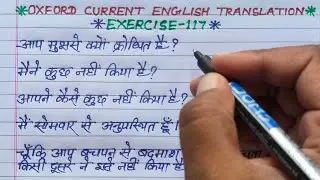 *OXFORD CURRENT ENGLISH TRANSLATION*
*EXERCISE-117*
आप मुझसे क्यों क्रोधित हैं ?
मैंने कुछ नहीं किया है ?
आपने कैसे कुछ नहीं किया है ?
मैं सोमवार से अनुपस्थित हूँ ।
चूँकि आप बचपन से बदमाश
किसी दूसरे ने शर्त नहीं किया है